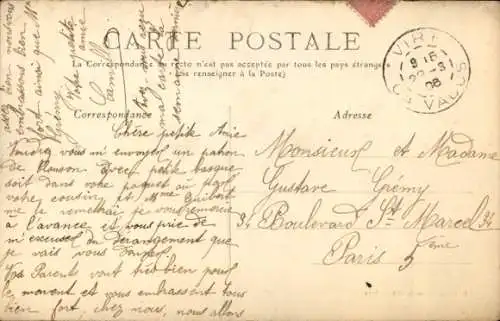 CARTE POSTALE
La Correspondance au recto n'est pas acceptée par tous les pays étrangers
(Se renseigner à la Poste)
Correspondance
Adresse
VIRE
9 15
22 -3
08
CALVADOS
Chère petite Amie
vous m'envoyer un patron
de Blouson avec petite basque
soit dans votre paquet ou par
votre cousin et Mme Guibert
me le remettrai je vous remercie
à l'avance et vous prie de
m'excuser du dérangement que
je vais vous
Vos Parents vont très bien pour
le moment et vous embrassent tous
bien fort, chez nous, nous allons
assez bien nous vous
embrassons bien
fort ainsi que Mr
Grémy
Votre petite
amie
Camille
Monsieur et Madame
Gustave Grémy
34 Boulevard St Marcel 34
Paris 5ème